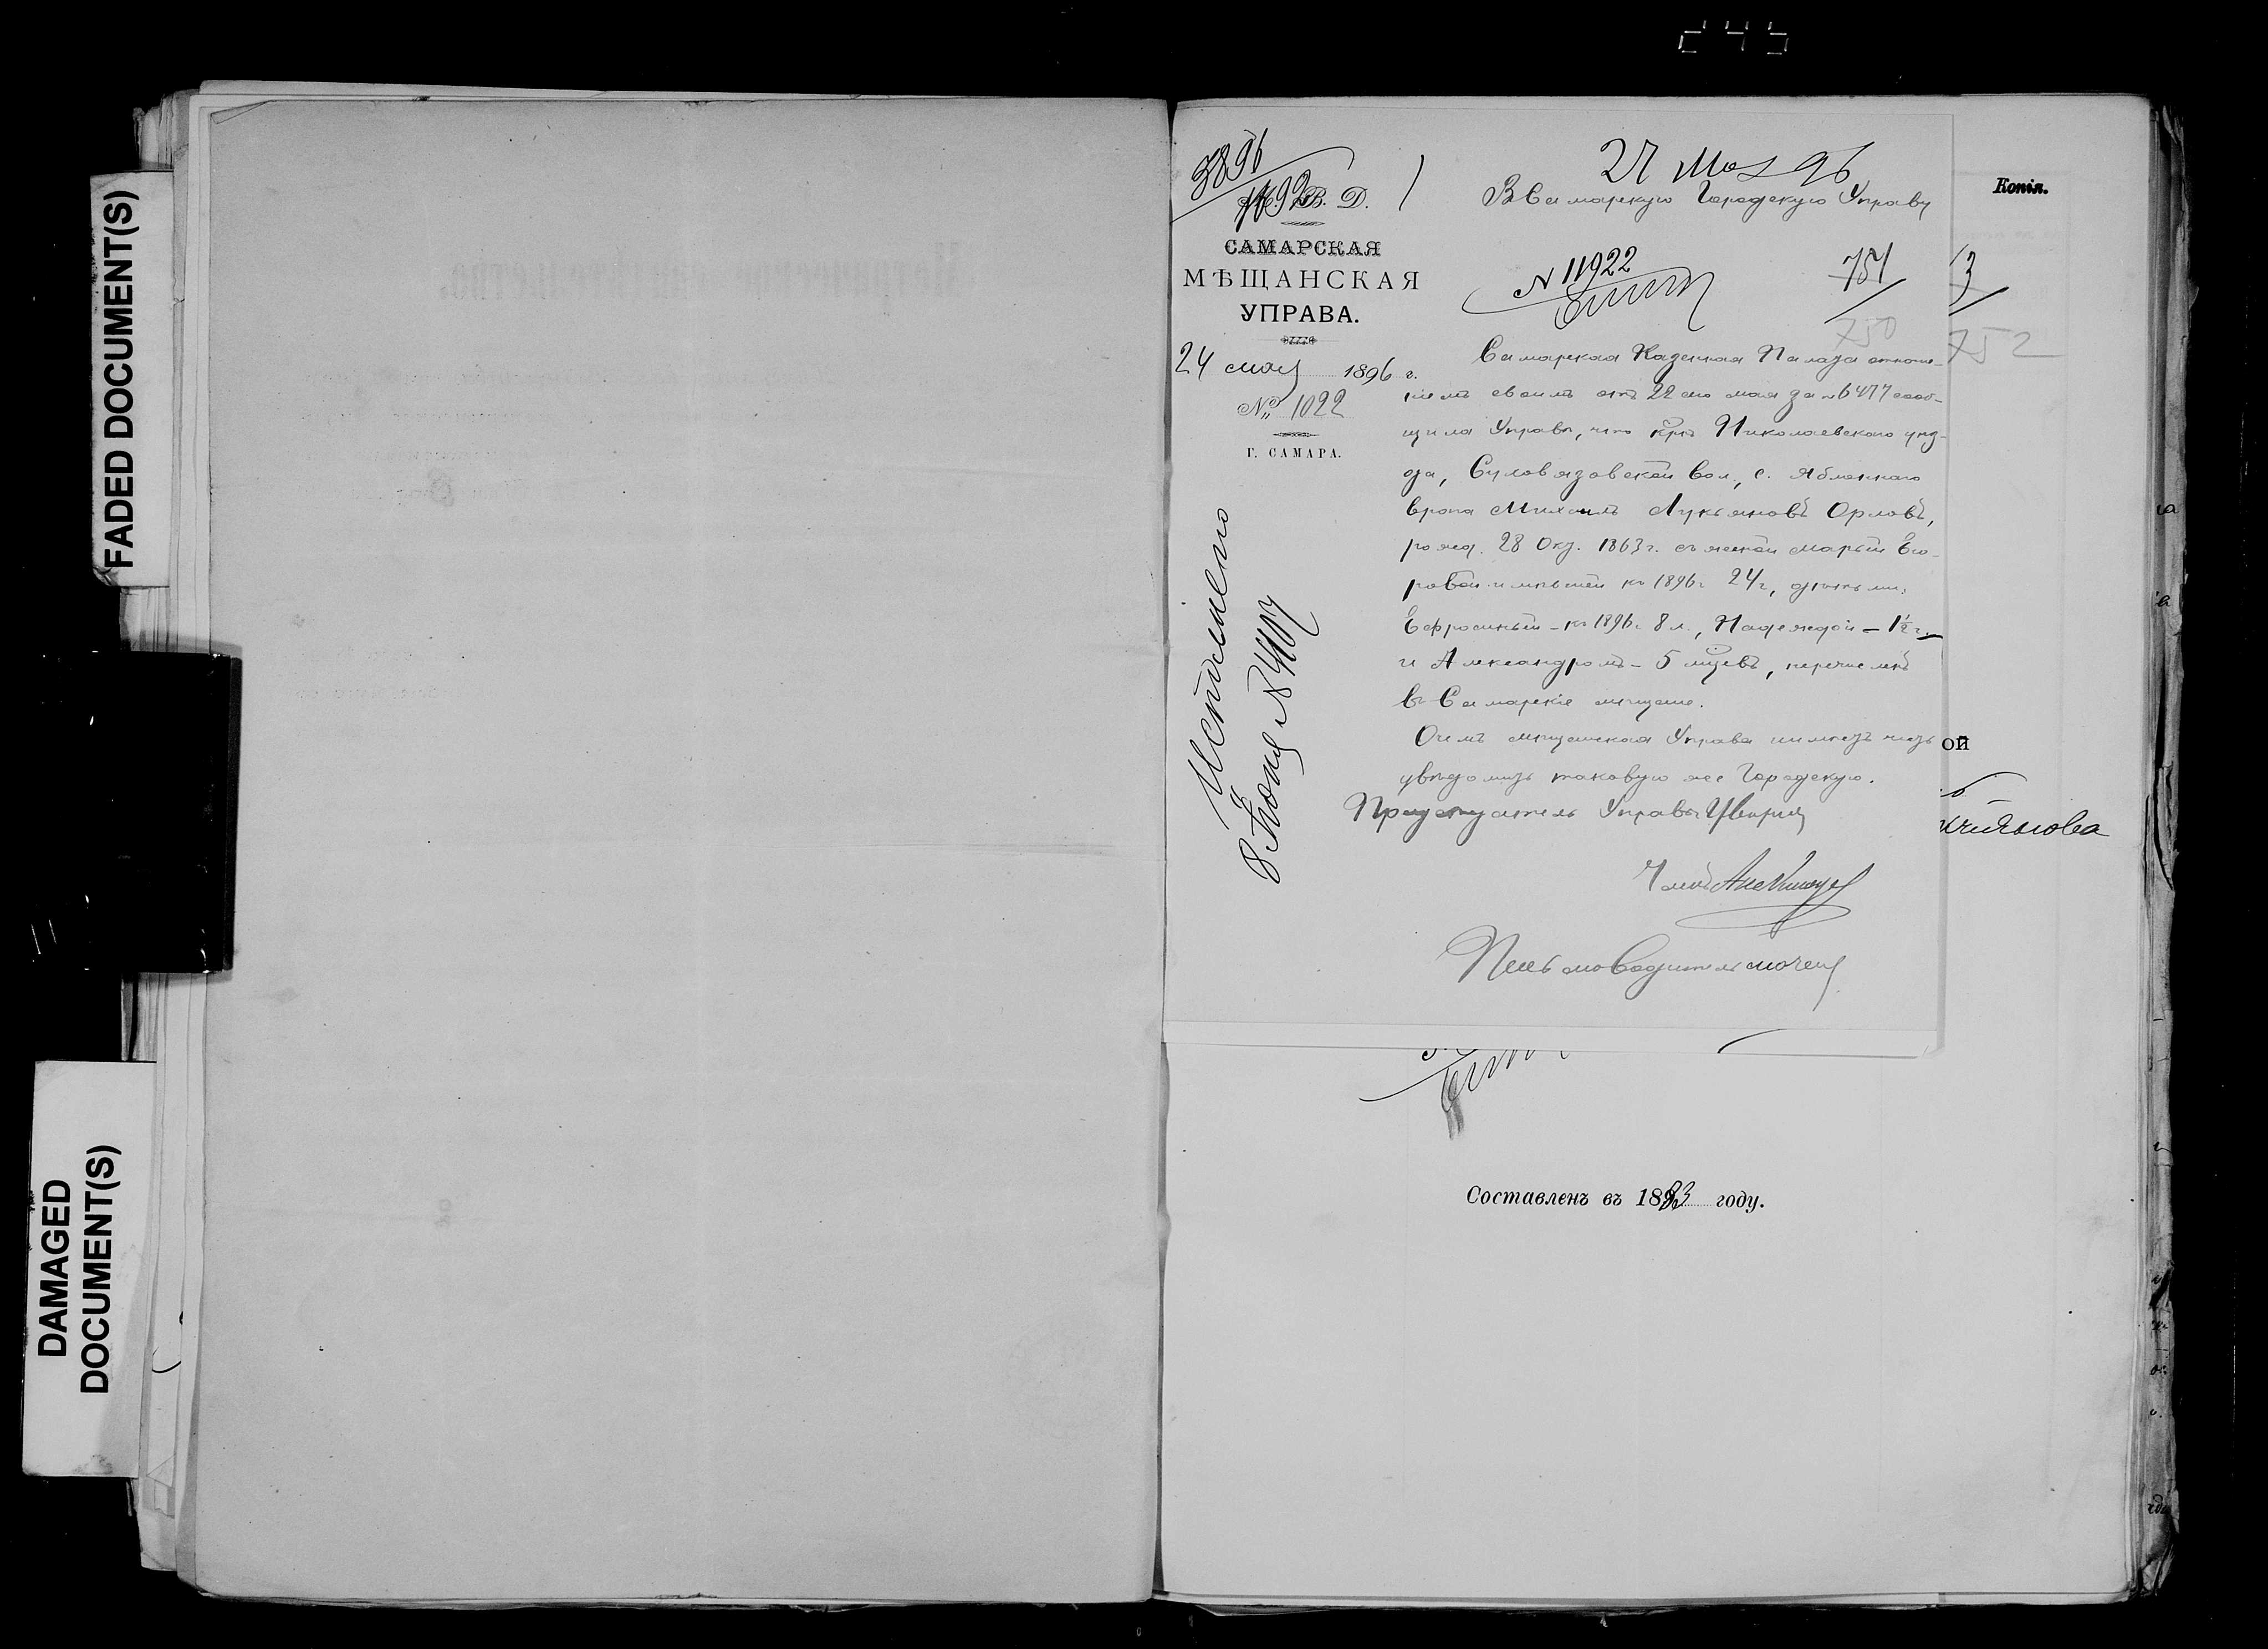 245
FADED DOCUMENT(S)
DAMAGED
DOCUMENT(S)
3896
В. Д.
САМАРСКАЯ
МѢЩАНСКАЯ
УПРАВА.
24 мая 1896 г.
№ 1022
Г. САМАРА.
Исполнено
8 Июня № 4107
27 Мая 96
В Самарскую Городскую Управу
N 11922
751
750
Самарская Казенная Палата отноше-
ніемъ своимъ отъ 22 сего мая за № 6477 сооб-
щила Управѣ, что кр-нъ Николаевскаго уѣз-
да, Сулов­язовской вол., с. Яблоннаго
Врага Михаилъ Лукьяновъ Орловъ,
рожд. 28 Окт. 1863 г. съ женой Марьей Его-
ровой имѣвшей къ 1896 г. 24 г., дѣтьми:
Ефросиньей - къ 1896 г. 8 л., Надеждой - 1½ г.
и Александромъ - 5 мѣсцевъ, перечисленъ
въ Самарскіе мѣщане.
О чемъ мѣщанская Управа имѣетъ честь
увѣдомить таковую же Городскую.
Предсѣдатель Управы
Членъ
Письмоводитель
Копія.
3
752
ой
Составленъ въ 1883 году.